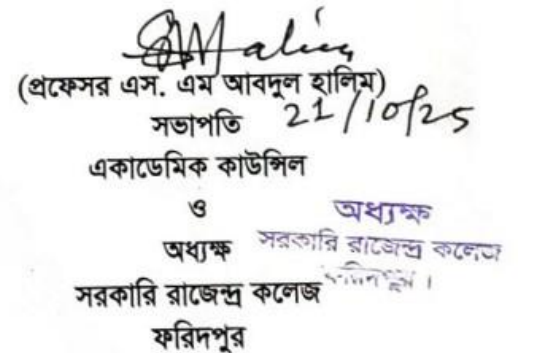 (প্রফেসর এস. এম আবদুল হালিম)
21/10/25
সভাপতি
একাডেমিক কাউন্সিল
ও
অধ্যক্ষ
সরকারি রাজেন্দ্র কলেজ
ফরিদপুর
অধ্যক্ষ
সরকারি রাজেন্দ্র কলেজ